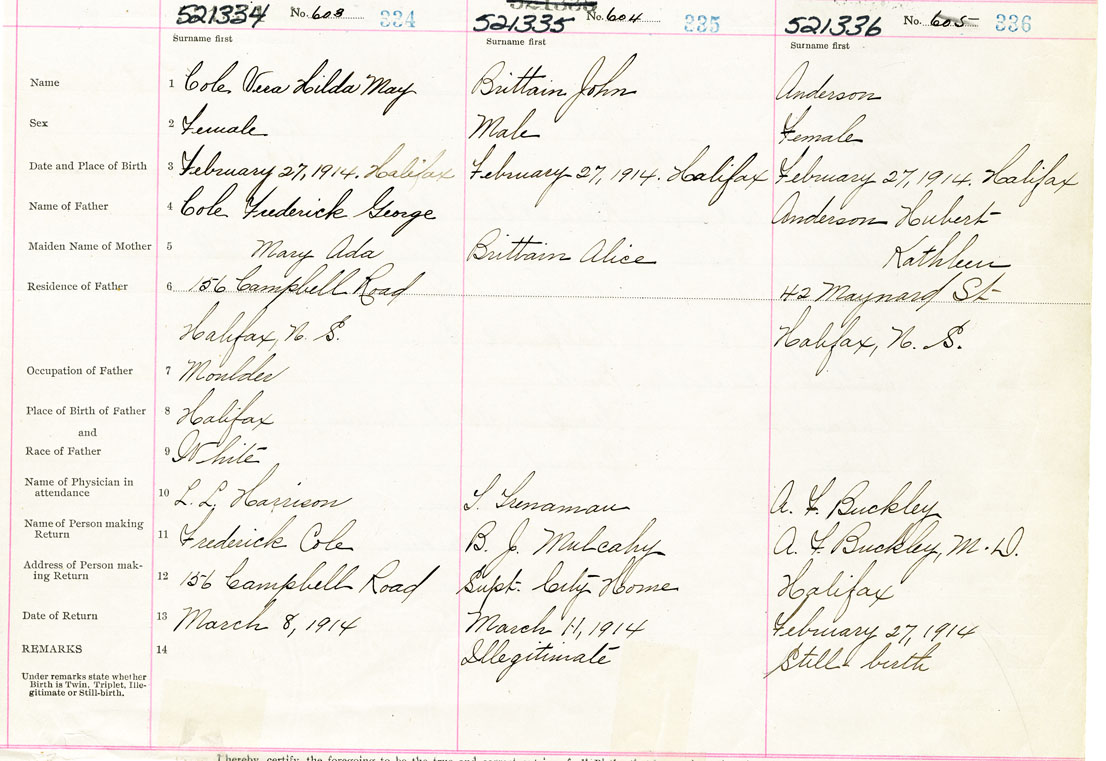 521334 No. 603 334 521335 No. 604 335 521336 No. 605 336
Surname first Surname first Surname first
Name 1 Cole Vera Hilda May Brittain John Anderson
Sex 2 Female Male Female
Date and Place of Birth 3 February 27, 1914. Halifax February 27, 1914. Halifax February 27, 1914. Halifax
Name of Father 4 Cole Frederick George Anderson Hubert
Maiden Name of Mother 5 Mary Ada Brittain Alice Kathleen
Residence of Father 6 156 Campbell Road 42 Maynard St
Halifax, N. S. Halifax, N. S.
Occupation of Father 7 Moulder
Place of Birth of Father 8 Halifax
and
Race of Father 9 White
Name of Physician in
attendance 10 L. L. Harrison T. Trenaman A. F. Buckley
Name of Person making
Return 11 Frederick Cole B. J. Mulcahy A. F. Buckley, M. D.
Address of Person mak-
ing Return 12 156 Campbell Road Supt. City Home Halifax
Date of Return 13 March 8, 1914 March 11, 1914 February 27, 1914
REMARKS 14 Illegitimate Still-birth
Under remarks state whether
Birth is Twin, Triplet, Ille-
gitimate or Still-birth.
I hereby certify the foregoing to be the true and correct